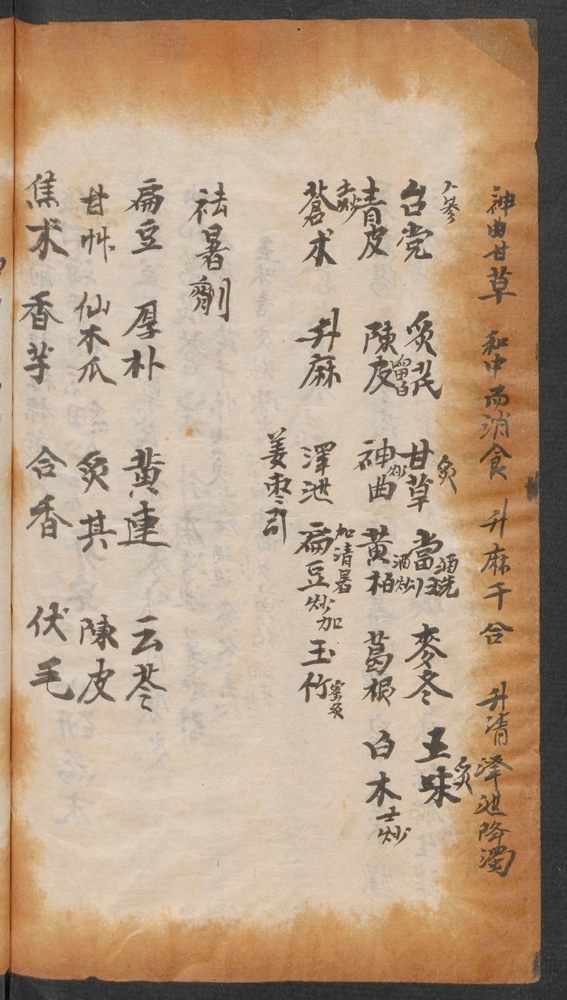 神曲甘草 和中而消食 升麻干合 升清 泽泄降濁
人参
台党 炙芪 甘草炙 當归酒洗 麥冬 五味炙
青皮去炒 陳皮留白 神曲炒 黄柏酒炒 葛根 白术土炒
蒼术 升麻 澤泄 扁豆炒 加玉竹蜜炙
加清暑
姜枣引
祛暑劑
扁豆 厚朴 黄連 云苓
甘艸 仙木瓜 炙芪 陳皮
焦术 香茅 合香 伏毛